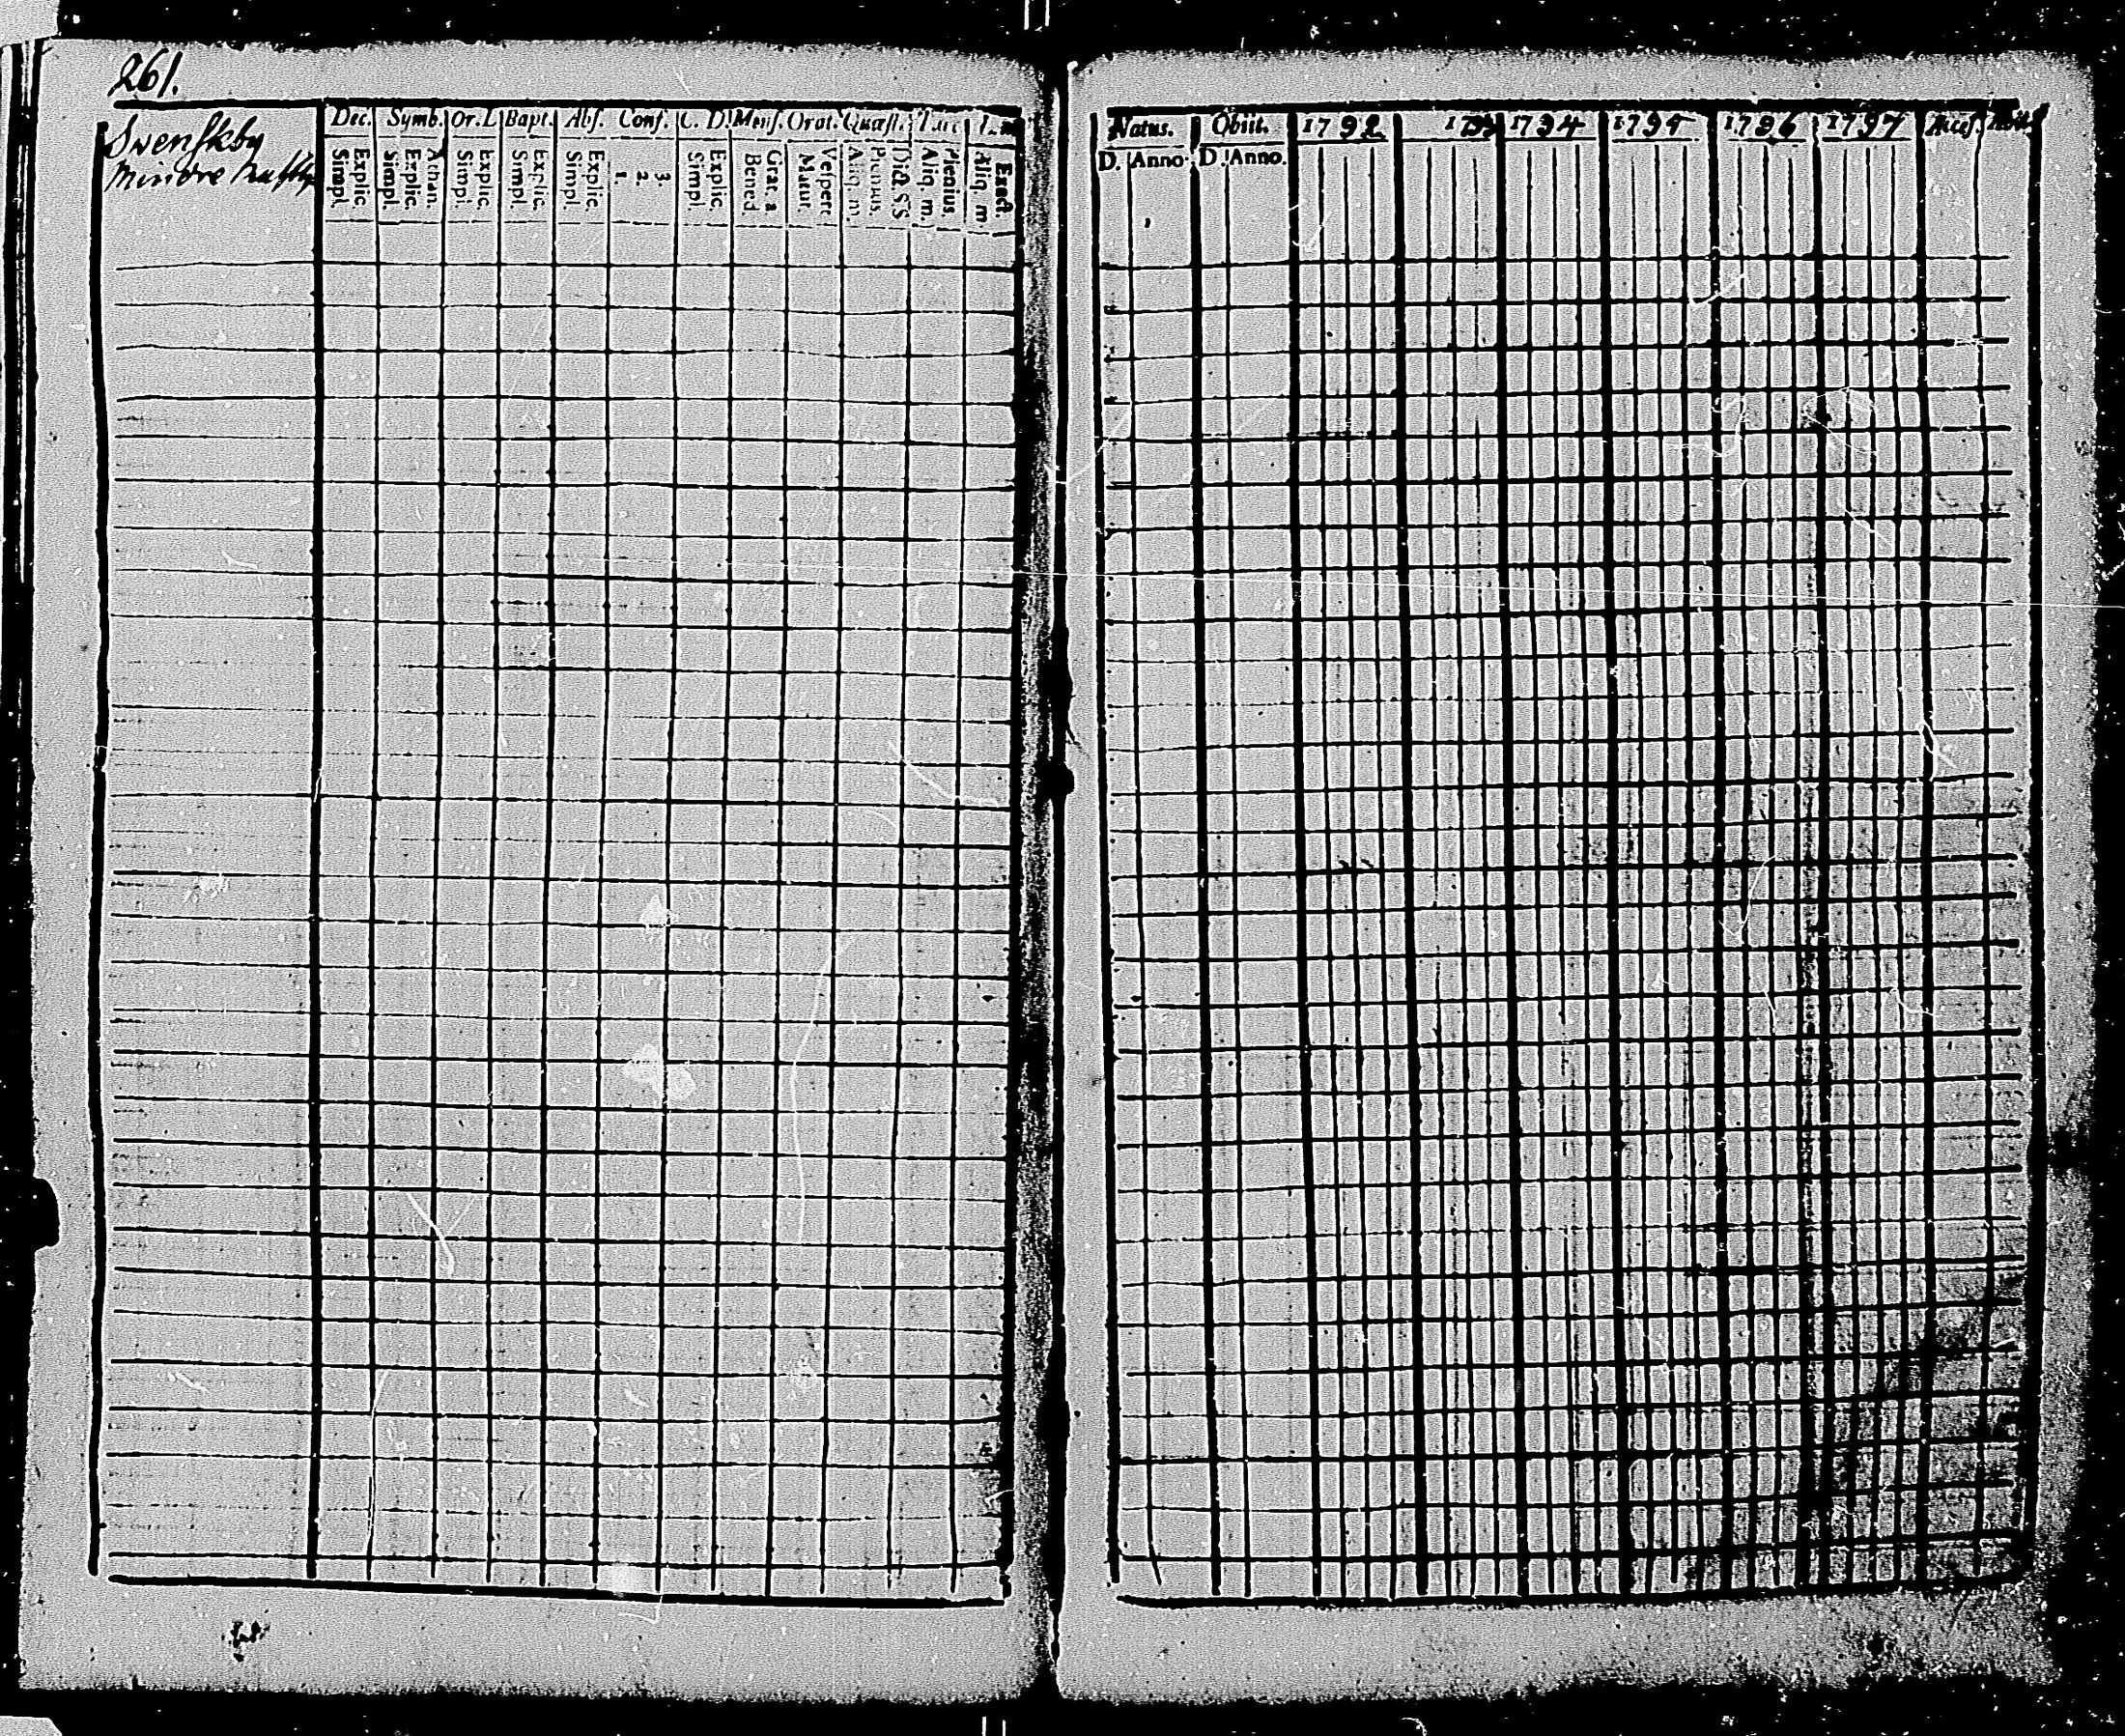 261.
Swenskby
Dec. Symb. Or. D Bapt. Abs. Conf. C. D. Mens. Orat. Quæst.
Simpl. Explic. Simpl. Explic. Athan. Simpl. Explic. Simpl. Explic. Simpl. Explic. 1. 2. 3. Simpl. Explic. Bened. Grat. a. Matut. Vespert. Aliq. m. Plenius. Dict. S S. Aliq. m. Plenius. Aliq. m. Exact.
Natus. Obiit. 1792 1793 1794 1795 1796 1797 Acces.
D. Anno. D. Anno.